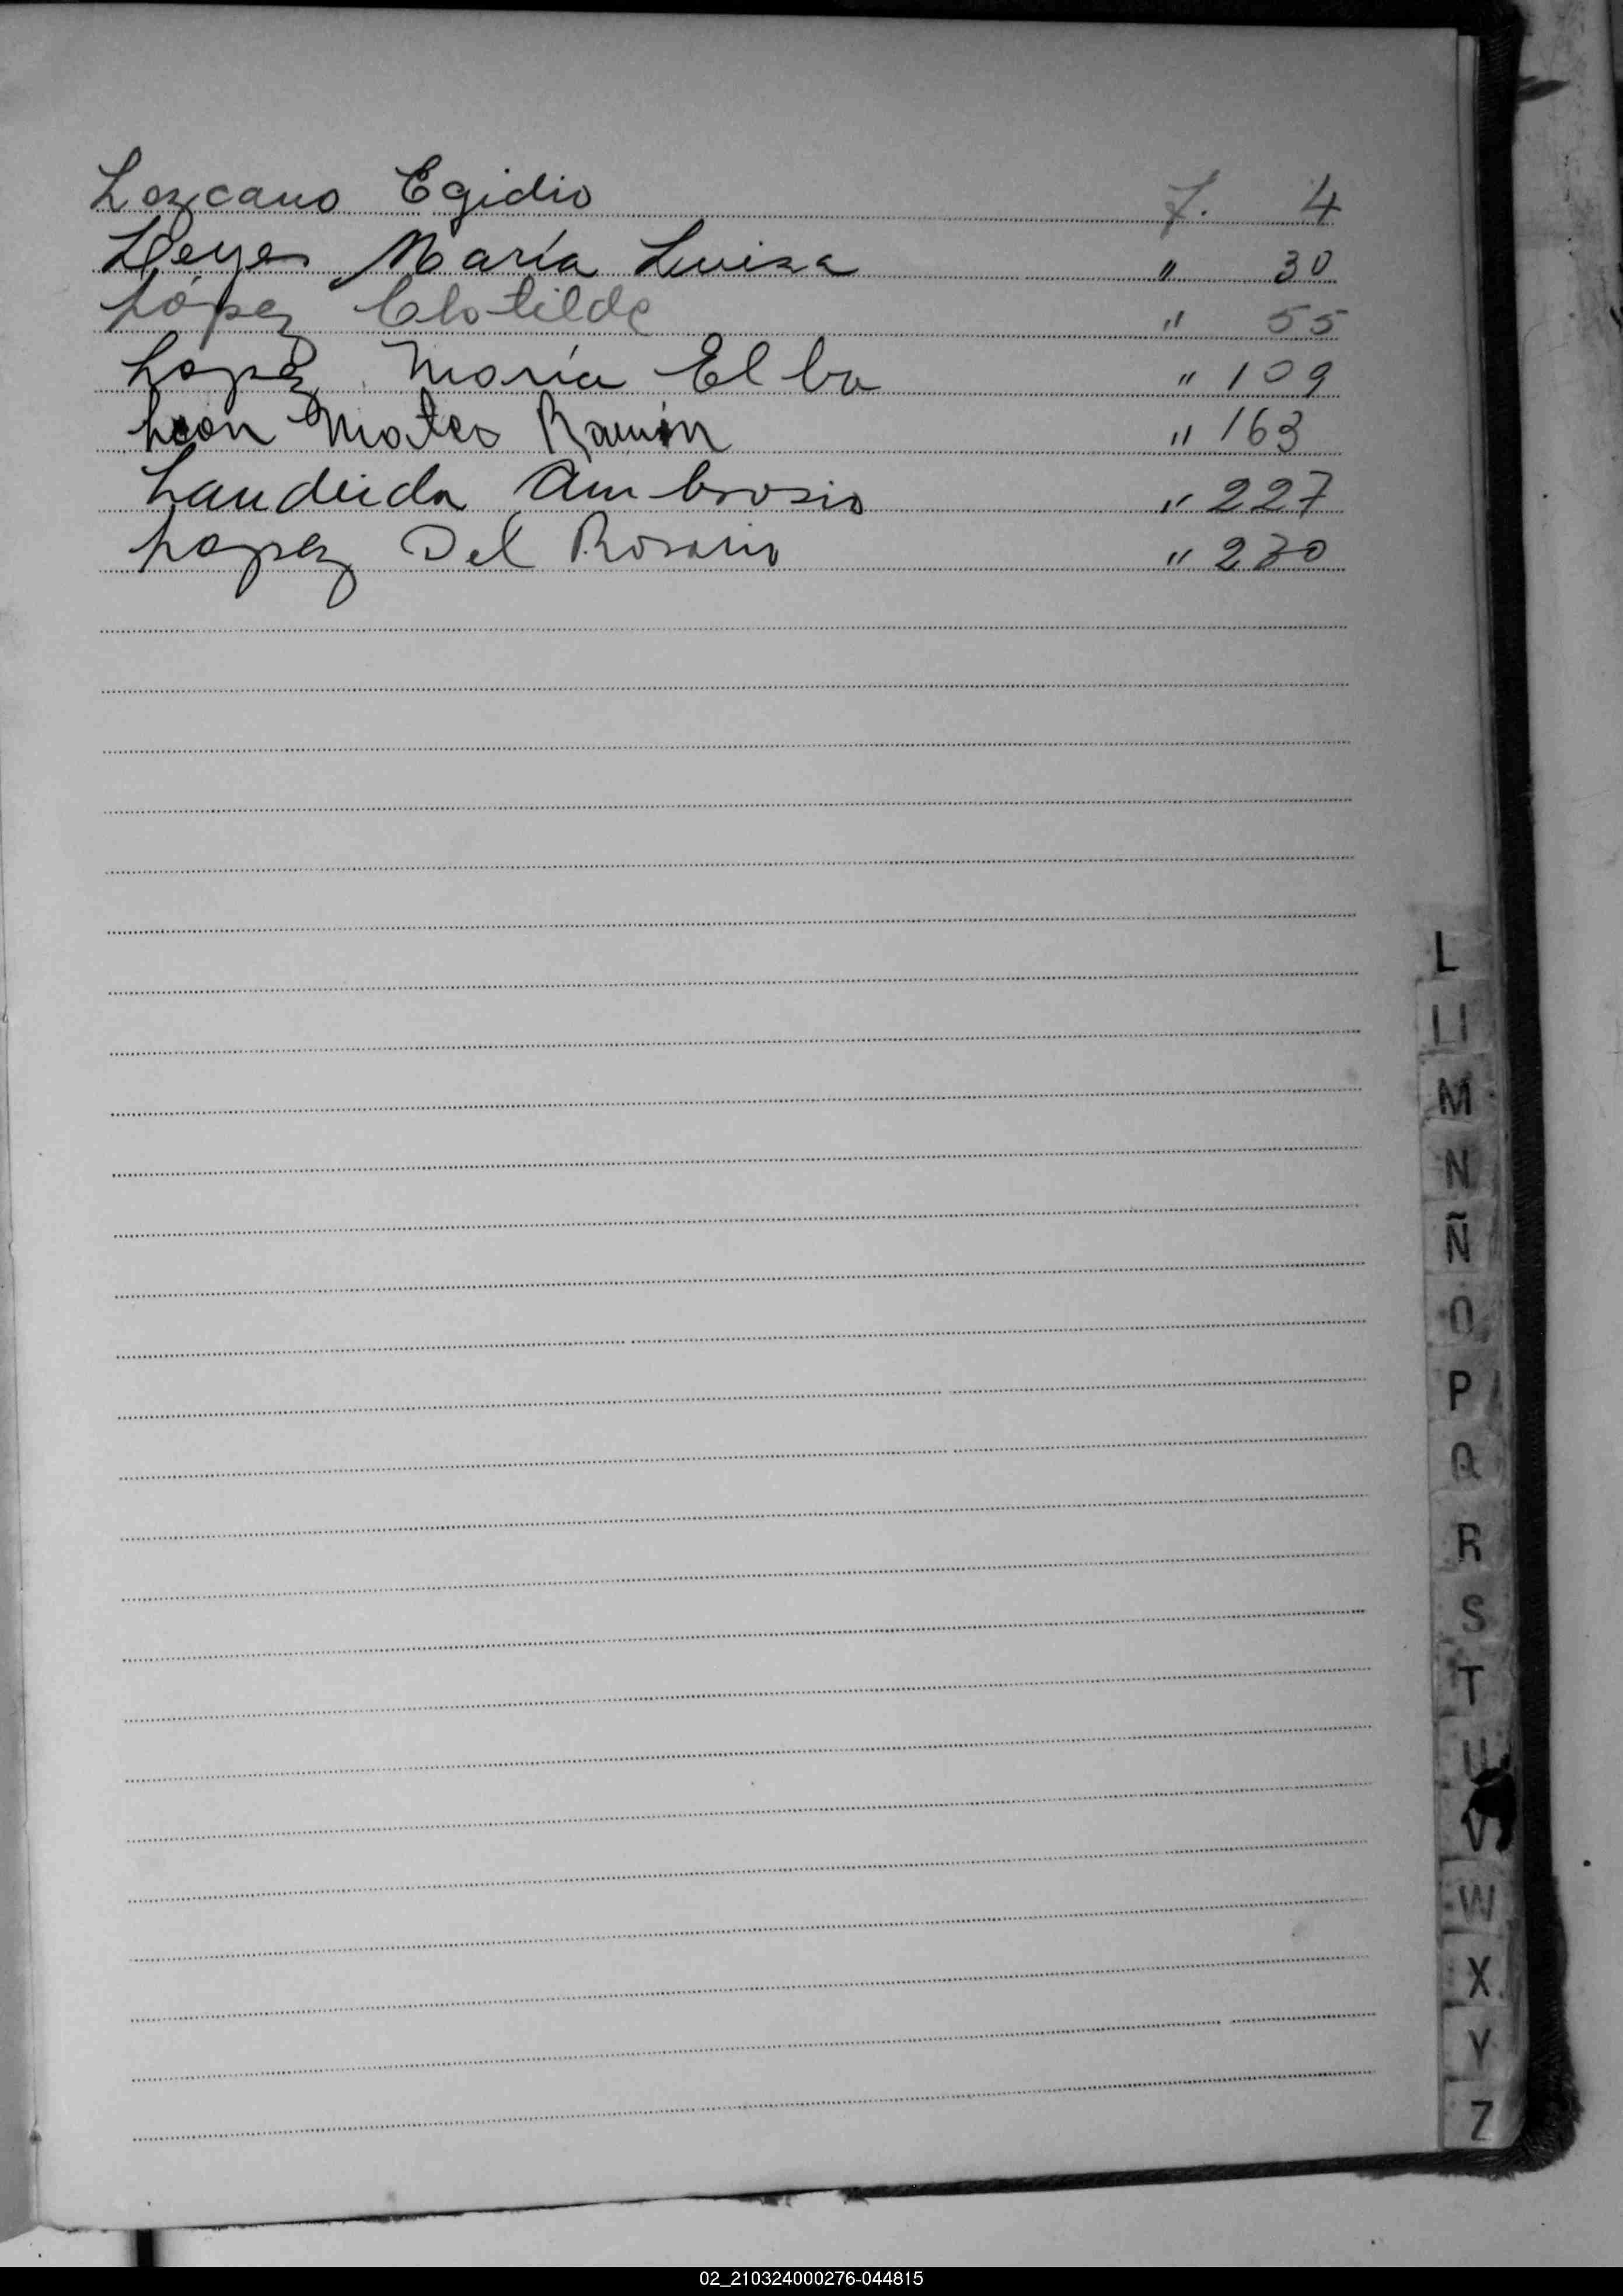 Lezcano Egidio f. 4
Leyes María Luisa " 30
López Clotilde " 55
Lopez María Elba " 109
León Mateo Ramón " 163
Landeida Ambrosio " 227
Lopez Del Rosario " 230
L
Ll
M
N
Ñ
O
P
Q
R
S
T
U
V
W
X
Y
Z
02_210324000276-044815